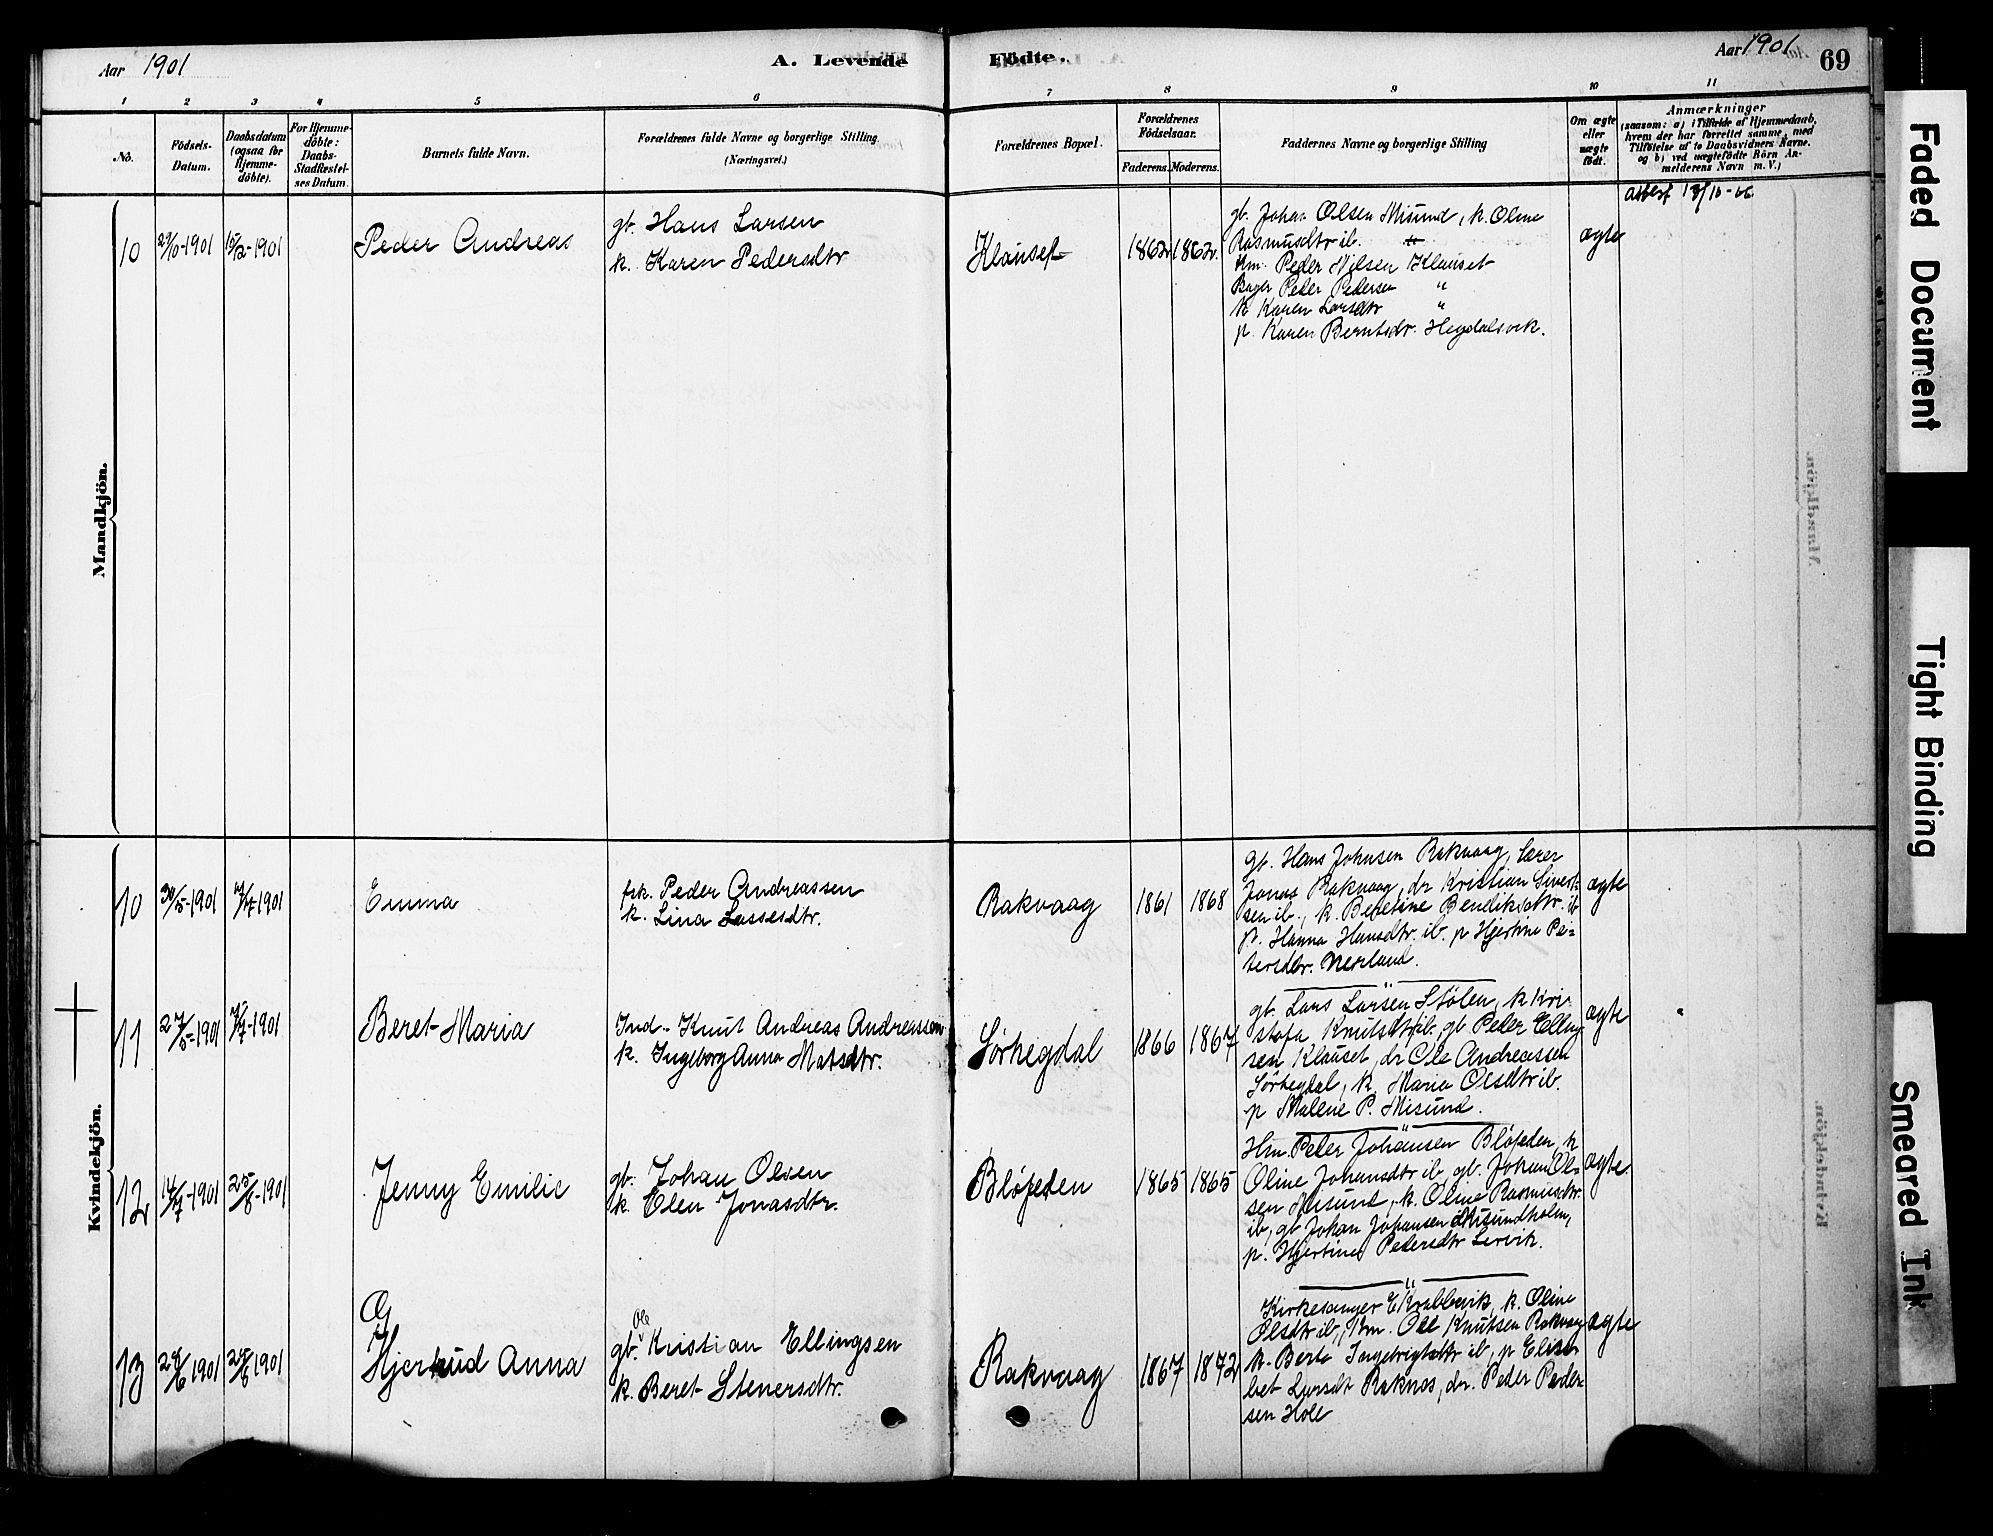 Aar 1901
A. Levende
Födte.
Aar 1901
69
1 2 3 4 5 6 7 8 9 10 11
No.
Födsels-
Datum.
Daabsdatum
(ogsaa for
Hjemme-
döbte).
For Hjemme-
döbte:
Daabs-
Stadfæstel-
ses Datum.
Barnets fulde Navn.
Forældrenes fulde Navne og borgerlige Stilling
(Næringsvei.)
Forældrenes Bopæl.
Forældrenes
Födselsaar.
Faderens. Moderens.
Faddernes Navne og borgerlige Stilling
Om ægte
eller
uægte
födt.
Anmærkninger
(saasom: a) i Tilfælde af Hjemmedaab,
hvem der har forrettet samme, med
Tilföielse af to Daabsvidners Navne.
og b) ved uægtefödte Börn An-
melderens Navn m. V.)
Mandkjön.
10
29/10-1901
15/12-1901
Peder Andreas
gb. Hans Larsen
k. Karen Pedersdtr
Klauset
1862
1862
gb. Johan Olsen Misund, k. Oline
Rasmusdtr ib.
Km. Peder Nilsen Klauset
Peder Pedersen "
k Karen Larsdtr "
p. Karen Berntsdr. Hegdalsvik.
ægte
Kvindekjön.
10
30/5-1901
7/7-1901
Emma
fsk. Peder Andreassen
k. Lina Lassesdtr.
Rakvaag
1861
1868
gb. Hans Johnsen Rakvaag, lærer
Jonas Rakvaag, dr Kristian Sivert-
sen ib., k. Beretine Bendiksdtr. ib
p. Hanna Hansdtr. ib. p Hjertine Pe=
tersdtr. Nerland.
ægte
11
27/5-1901
7/7-1901
Beret Maria
Ind. Knut Andreas Andreassen
k. Ingeborg Anna Matsdtr.
Sörhegdal
1866
1867
gb. Lars Larsen Stölen, k Kri-
stofa Knutsdtr ib, gb Peder Elling
sen Klauset, dr Ole Andreassen
Sörhegdal, k. Maria Olsdtr ib.
p Malene P. Misund.
ægte
12
14/7-1901
25/8-1901
Jenny Emilie
gb. Johan Olsen
k. Elen Jonasdtr.
1865
1865
Hm. Peder Johansen
Oline Johansdtr ib, gb. Johan Ol=
sen Misund, k. Oline Rasmusdtr.
ib, gb Johan Johansen Misundholm,
p. Hjertine Pedersdtr Lervik.
ægte.
13
1901
1901
Hjertrud Anna
gb. Ole Kristian Ellingsen
k. Beret Stenersdtr.
Rakvaag
1867
1872
Kirkesanger E Krabbevik, k. Oline
Olsdtr ib, Km. Ole Knutsen Rakvaag
k. Berte Ingebrigtsdtr ib, p Elisa-
bet Larsdt Raknes, dr. Peder Peder
sen Hole
ægte
Faded Document
Tight Binding
Smeared Ink